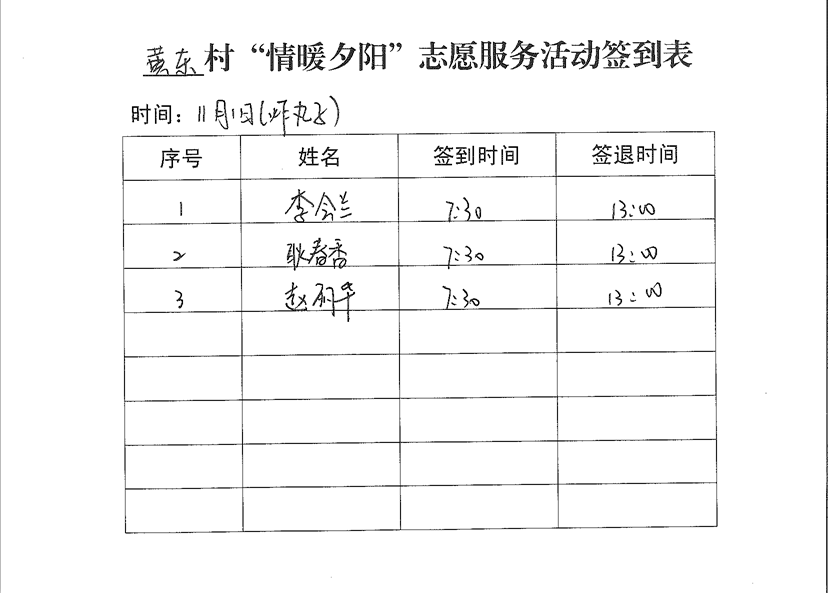 黄东村“情暖夕阳”志愿服务活动签到表
时间：11月1日(炸丸子)
序号 姓名 签到时间 签退时间
1 李会兰 7:30 13:00
2 耿春香 7:30 13:00
3 赵丽华 7:30 13:00